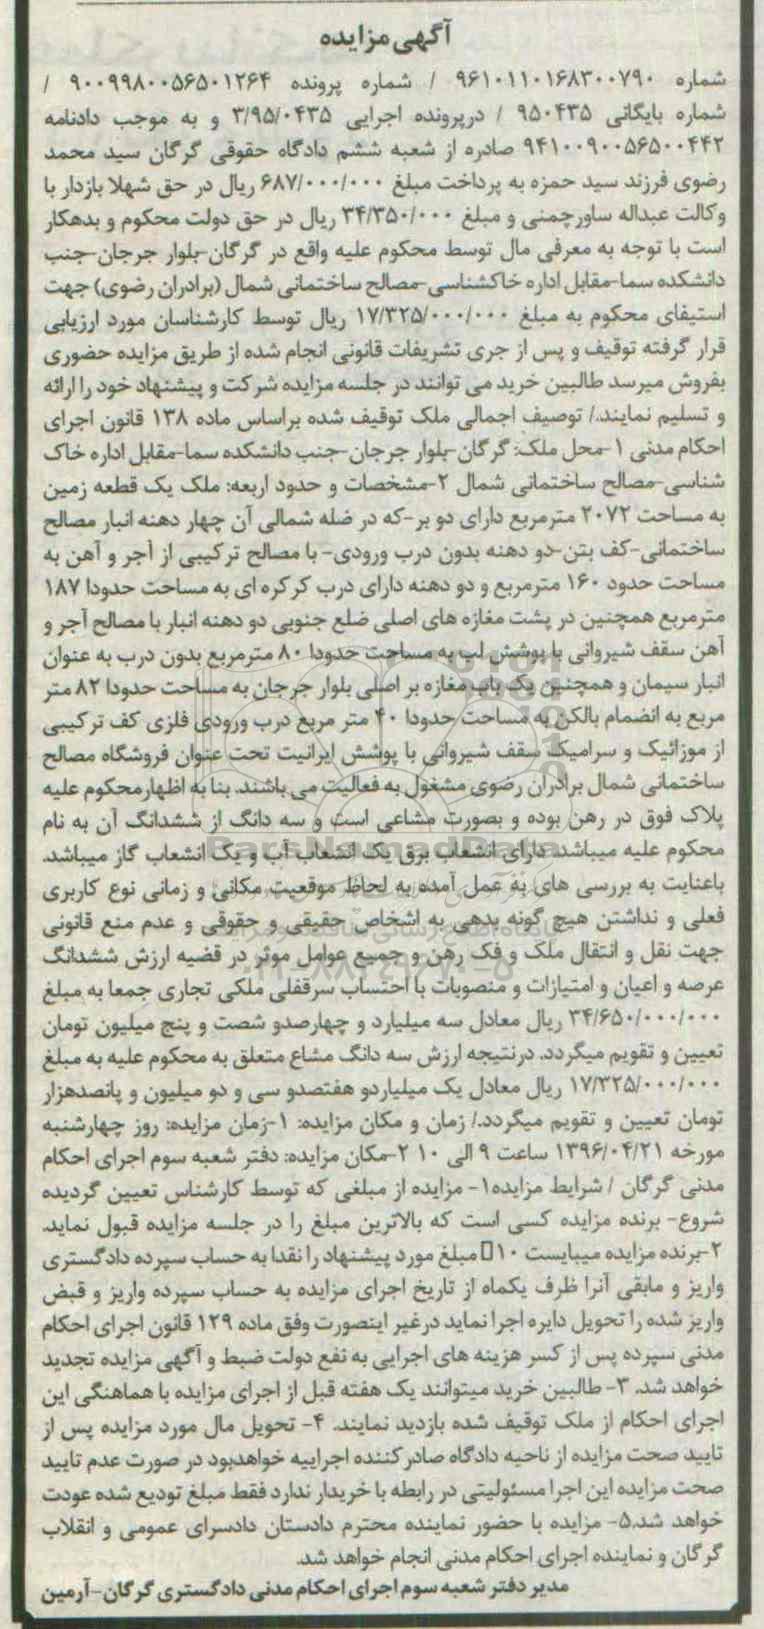 آگهی مزایده
شماره ۹۶۱۰۱۱۰۱۶۸۳۰۰۷۹۰ / شماره پرونده ۹۰۰۹۹۸۰۰۵۶۵۰۱۲۶۴ /
شماره بایگانی ۹۵۰۴۳۵ / درپرونده اجرایی ۳/۹۵/۰۴۳۵ و به موجب دادنامه
۹۴۱۰۰۹۰۰۵۶۵۰۰۴۴۲ صادره از شعبه ششم دادگاه حقوقی گرگان سید محمد
رضوی فرزند سید حمزه به پرداخت مبلغ ۶۸۷/۰۰۰/۰۰۰ ریال در حق شهلا بازدار با
وکالت عبداله ساورچمنی و مبلغ ۳۴/۳۵۰/۰۰۰ ریال در حق دولت محکوم و بدهکار
است با توجه به معرفی مال توسط محکوم علیه واقع در گرگان-بلوار جرجان-جنب
دانشکده سما-مقابل اداره خاکشناسی-مصالح ساختمانی شمال (برادران رضوی) جهت
استیفای محکوم به مبلغ ۱۷/۳۲۵/۰۰۰/۰۰۰ ریال توسط کارشناسان مورد ارزیابی
قرار گرفته توقیف و پس از جری تشریفات قانونی انجام شده از طریق مزایده حضوری
بفروش میرسد طالبین خرید می توانند در جلسه مزایده شرکت و پیشنهاد خود را ارائه
و تسلیم نمایند./ توصیف اجمالی ملک توقیف شده براساس ماده ۱۳۸ قانون اجرای
احکام مدنی ۱-محل ملک: گرگان-بلوار جرجان-جنب دانشکده سما-مقابل اداره خاک
شناسی-مصالح ساختمانی شمال ۲-مشخصات و حدود اربعه: ملک یک قطعه زمین
به مساحت ۲۰۷۲ مترمربع دارای دو بر-که در ضله شمالی آن چهار دهنه انبار مصالح
ساختمانی-کف بتن-دو دهنه بدون درب ورودی- با مصالح ترکیبی از آجر و آهن به
مساحت حدود ۱۶۰ مترمربع و دو دهنه دارای درب کرکره ای به مساحت حدودا ۱۸۷
مترمربع همچنین در پشت مغازه های اصلی ضلع جنوبی دو دهنه انبار با مصالح آجر و
آهن سقف شیروانی با پوشش لب به مساحت حدودا ۸۰ مترمربع بدون درب به عنوان
انبار سیمان و همچنین یک باب مغازه بر اصلی بلوار جرجان به مساحت حدودا ۸۲ متر
مربع به انضمام بالکن به مساحت حدودا ۴۰ متر مربع درب ورودی فلزی کف ترکیبی
از موزائیک و سرامیک سقف شیروانی با پوشش ایرانیت تحت عنوان فروشگاه مصالح
ساختمانی شمال برادران رضوی مشغول به فعالیت می باشند. بنا به اظهارمحکوم علیه
پلاک فوق در رهن بوده و بصورت مشاعی است و سه دانگ از ششدانگ آن به نام
محکوم علیه میباشد. دارای انشعاب برق یک انشعاب آب و یک انشعاب گاز میباشد.
باعنایت به بررسی های به عمل آمده به لحاظ موقعیت مکانی و زمانی نوع کاربری
فعلی و نداشتن هیچ گونه بدهی به اشخاص حقیقی و حقوقی و عدم منع قانونی
جهت نقل و انتقال ملک و فک رهن و جمیع عوامل موثر در قضیه ارزش ششدانگ
عرصه و اعیان و امتیازات و منصوبات با احتساب سرقفلی ملکی تجاری جمعا به مبلغ
۳۴/۶۵۰/۰۰۰/۰۰۰ ریال معادل سه میلیارد و چهارصدو شصت و پنج میلیون تومان
تعیین و تقویم میگردد. درنتیجه ارزش سه دانگ مشاع متعلق به محکوم علیه به مبلغ
۱۷/۳۲۵/۰۰۰/۰۰۰ ریال معادل یک میلیاردو هفتصدو سی و دو میلیون و پانصدهزار
تومان تعیین و تقویم میگردد./ زمان و مکان مزایده: ۱-زمان مزایده: روز چهارشنبه
مورخه ۱۳۹۶/۰۴/۲۱ ساعت ۹ الی ۱۰ ۲-مکان مزایده: دفتر شعبه سوم اجرای احکام
مدنی گرگان / شرایط مزایده۱- مزایده از مبلغی که توسط کارشناس تعیین گردیده
شروع- برنده مزایده کسی است که بالاترین مبلغ را در جلسه مزایده قبول نماید.
۲-برنده مزایده میبایست ۱۰▯ مبلغ مورد پیشنهاد را نقدا به حساب سپرده دادگستری
واریز و مابقی آنرا ظرف یکماه از تاریخ اجرای مزایده به حساب سپرده واریز و قبض
واریز شده را تحویل دایره اجرا نماید درغیر اینصورت وفق ماده ۱۲۹ قانون اجرای احکام
مدنی سپرده پس از کسر هزینه های اجرایی به نفع دولت ضبط و آگهی مزایده تجدید
خواهد شد. ۳- طالبین خرید میتوانند یک هفته قبل از اجرای مزایده با هماهنگی این
اجرای احکام از ملک توقیف شده بازدید نمایند. ۴- تحویل مال مورد مزایده پس از
تایید صحت مزایده از ناحیه دادگاه صادرکننده اجراییه خواهدبود در صورت عدم تایید
صحت مزایده این اجرا مسئولیتی در رابطه با خریدار ندارد فقط مبلغ تودیع شده عودت
خواهد شد.۵- مزایده با حضور نماینده محترم دادستان دادسرای عمومی و انقلاب
گرگان و نماینده اجرای احکام مدنی انجام خواهد شد.
مدیر دفتر شعبه سوم اجرای احکام مدنی دادگستری گرگان-آرمین
ParsNamadData